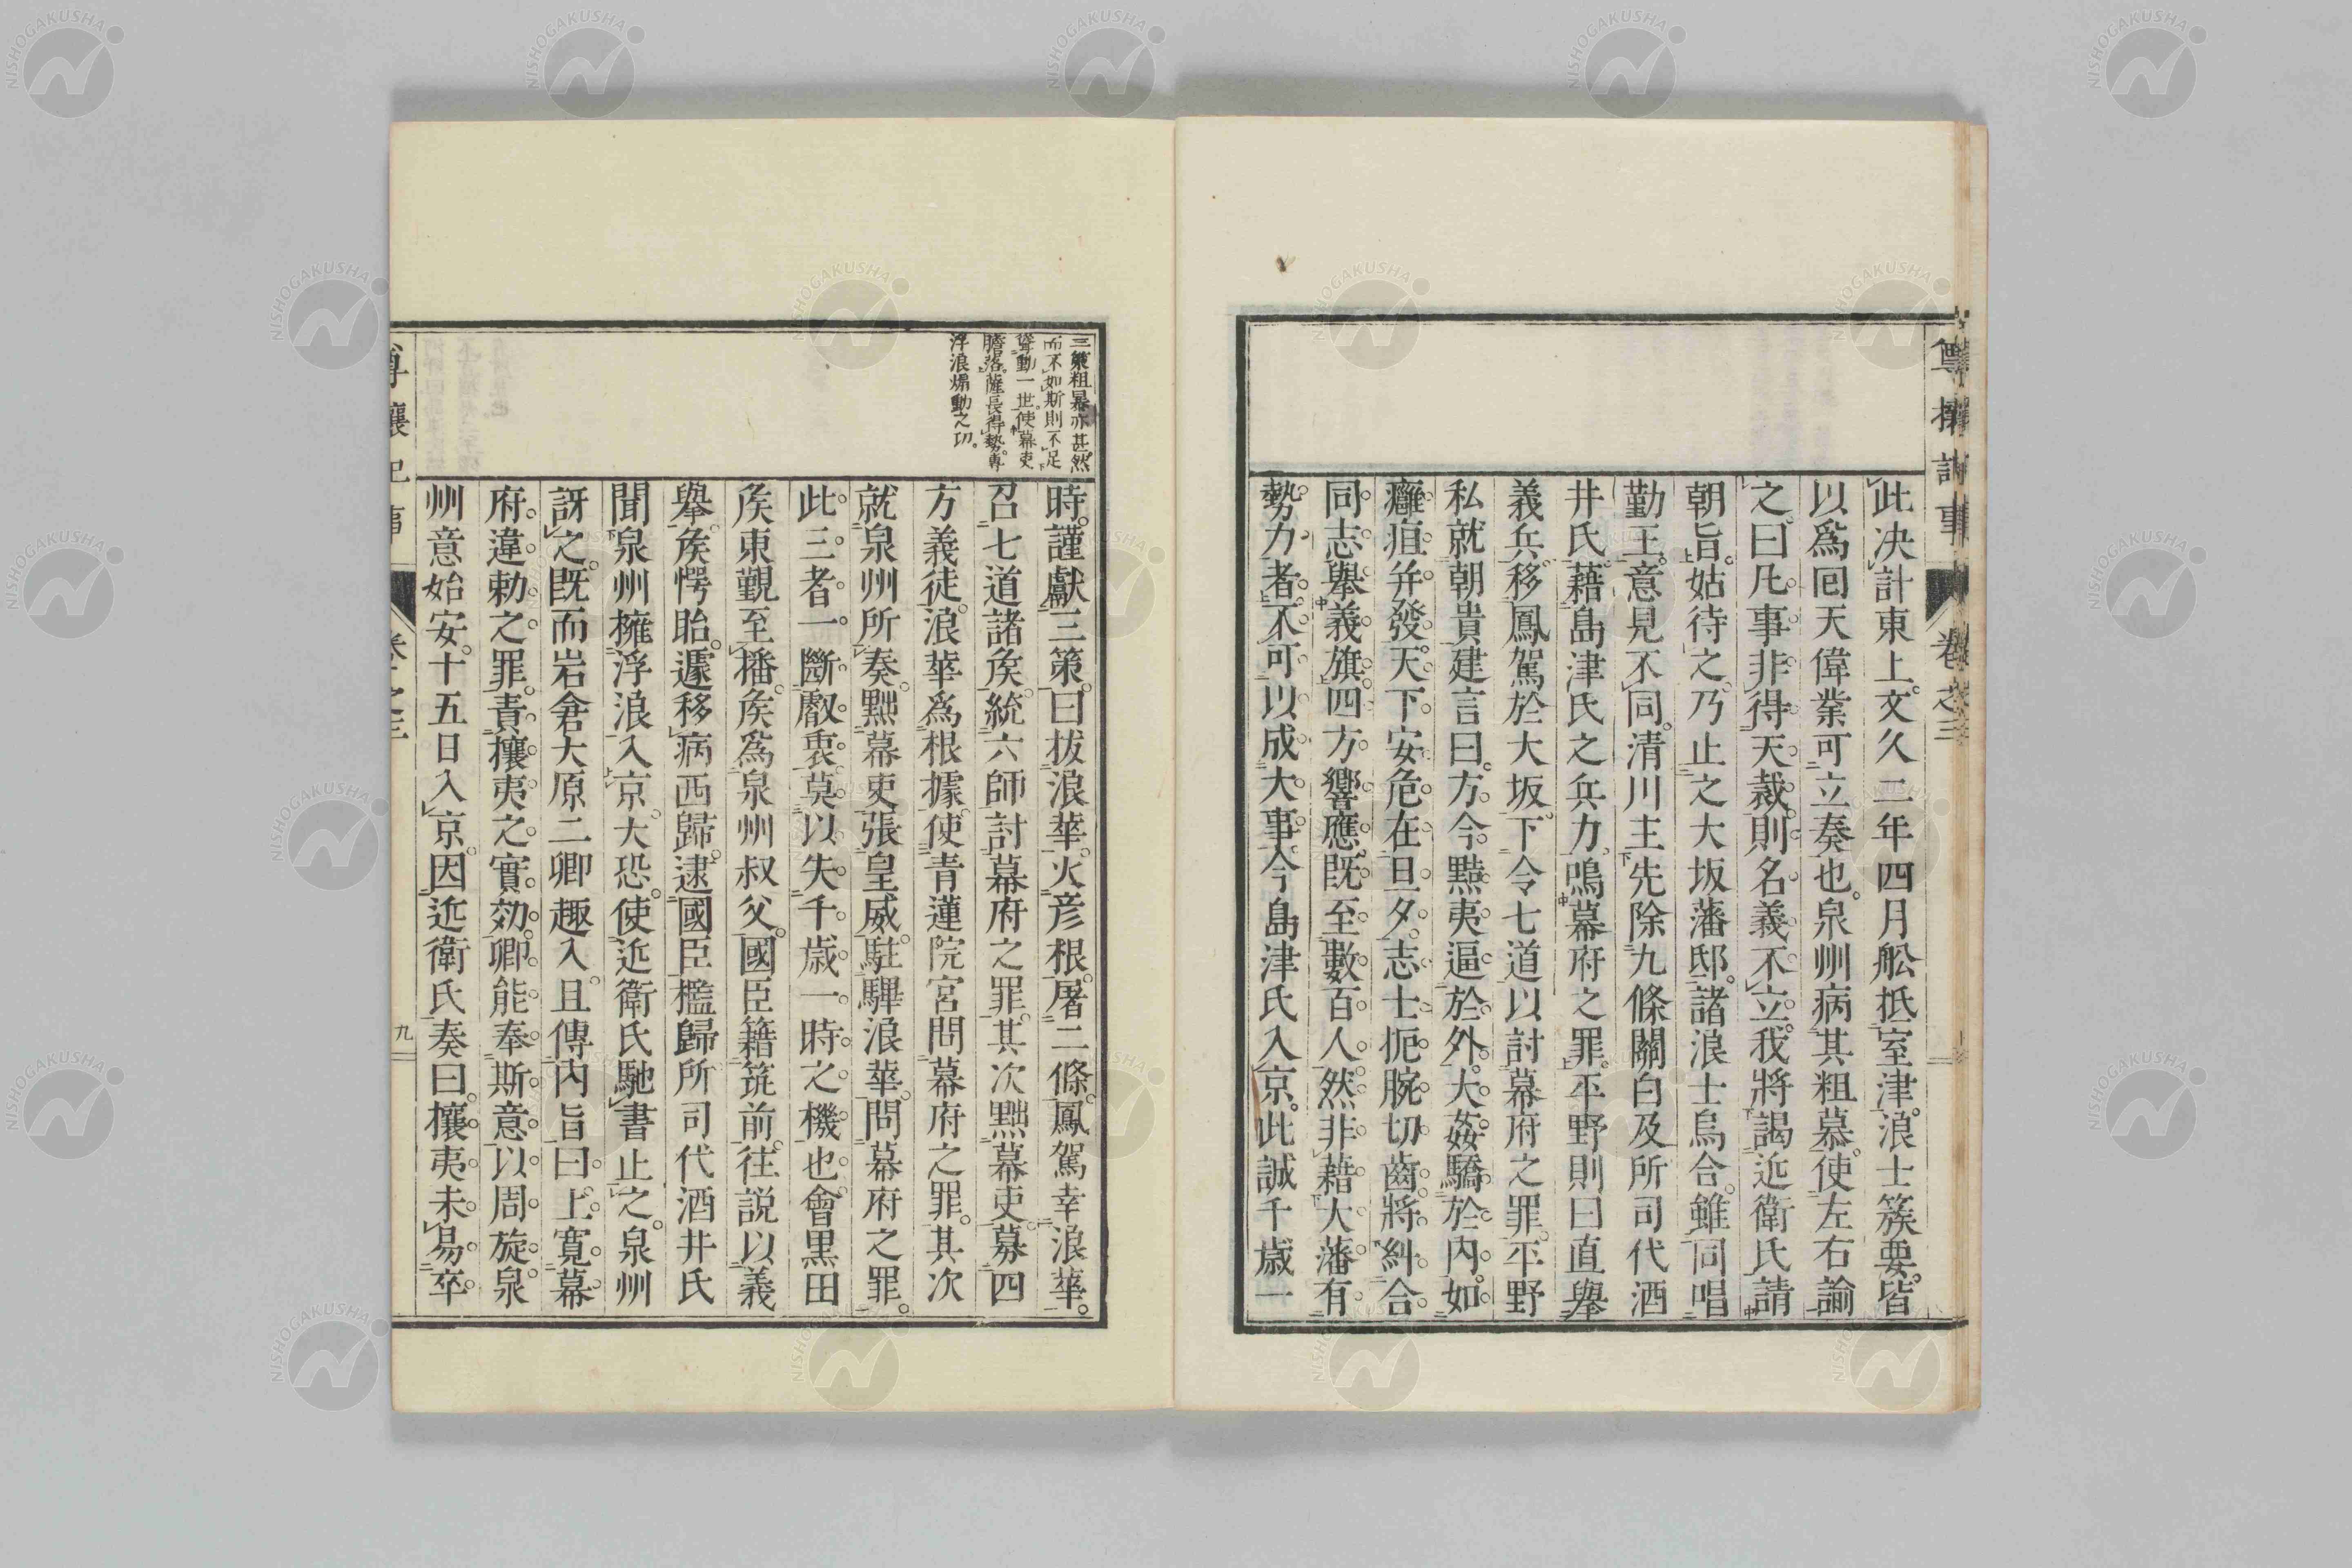 此決計東上。文久二年四月舩抵室津。浪士簇要。皆
以爲囘天偉業可立奏也。泉州病其粗慕。使左右諭
之曰。凡事非得天裁。則名義不立。我將謁近衛氏請
朝旨。姑待之。乃止之大坂藩邸。諸浪士烏合。雖同唱
勤王。意見不同。清川主先除九條關白及所司代酒
井氏。藉島津氏之兵力。鳴幕府之罪。平野則曰直舉
義兵。移鳳駕於大坂。下令七道以討幕府之罪。平野
私就朝貴建言曰。方今黠夷逼於外。大姦驕於内。如
癰疽并發。天下安危在旦夕。志士扼腕切齒。將糾合
同志。舉義旗。四方響應。既至數百人。然非藉大藩有
勢力者。不可以成大事。今島津氏入京。此誠千歳一
三策粗暴亦甚。然
而不如斯則不足
聳動一世。使幕吏
膽落。薩長得勢。專
浮浪煽動之功。
時。謹獻三策。曰拔浪華。火彦根。屠二條。鳳駕幸浪華。
召七道諸矦。統六師討幕府之罪。其次黜幕吏。募四
方義徒。浪華爲根據。使青蓮院宮問幕府之罪。其次
就泉州所奏。黜幕吏張皇威。駐驆浪華。問幕府之罪。
此三者。一斷叡衷。莫以失千歳一時之機也。會黒田
矦東覲至播。矦爲泉州叔父。國臣籍筑前。往説以義
舉。矦愕眙。遽移病西歸。逮國臣檻歸所司代酒井氏
聞泉州擁浮浪入京。大恐。使近衛氏馳書止之。泉州
訝之。既而岩倉大原二卿趣入。且傳内旨曰。上寛幕
府。違勅之罪。責攘夷之實効。卿能奉斯意。以周旋。泉
州意始安。十五日入京。因近衛氏奏曰。攘夷未易卒
九